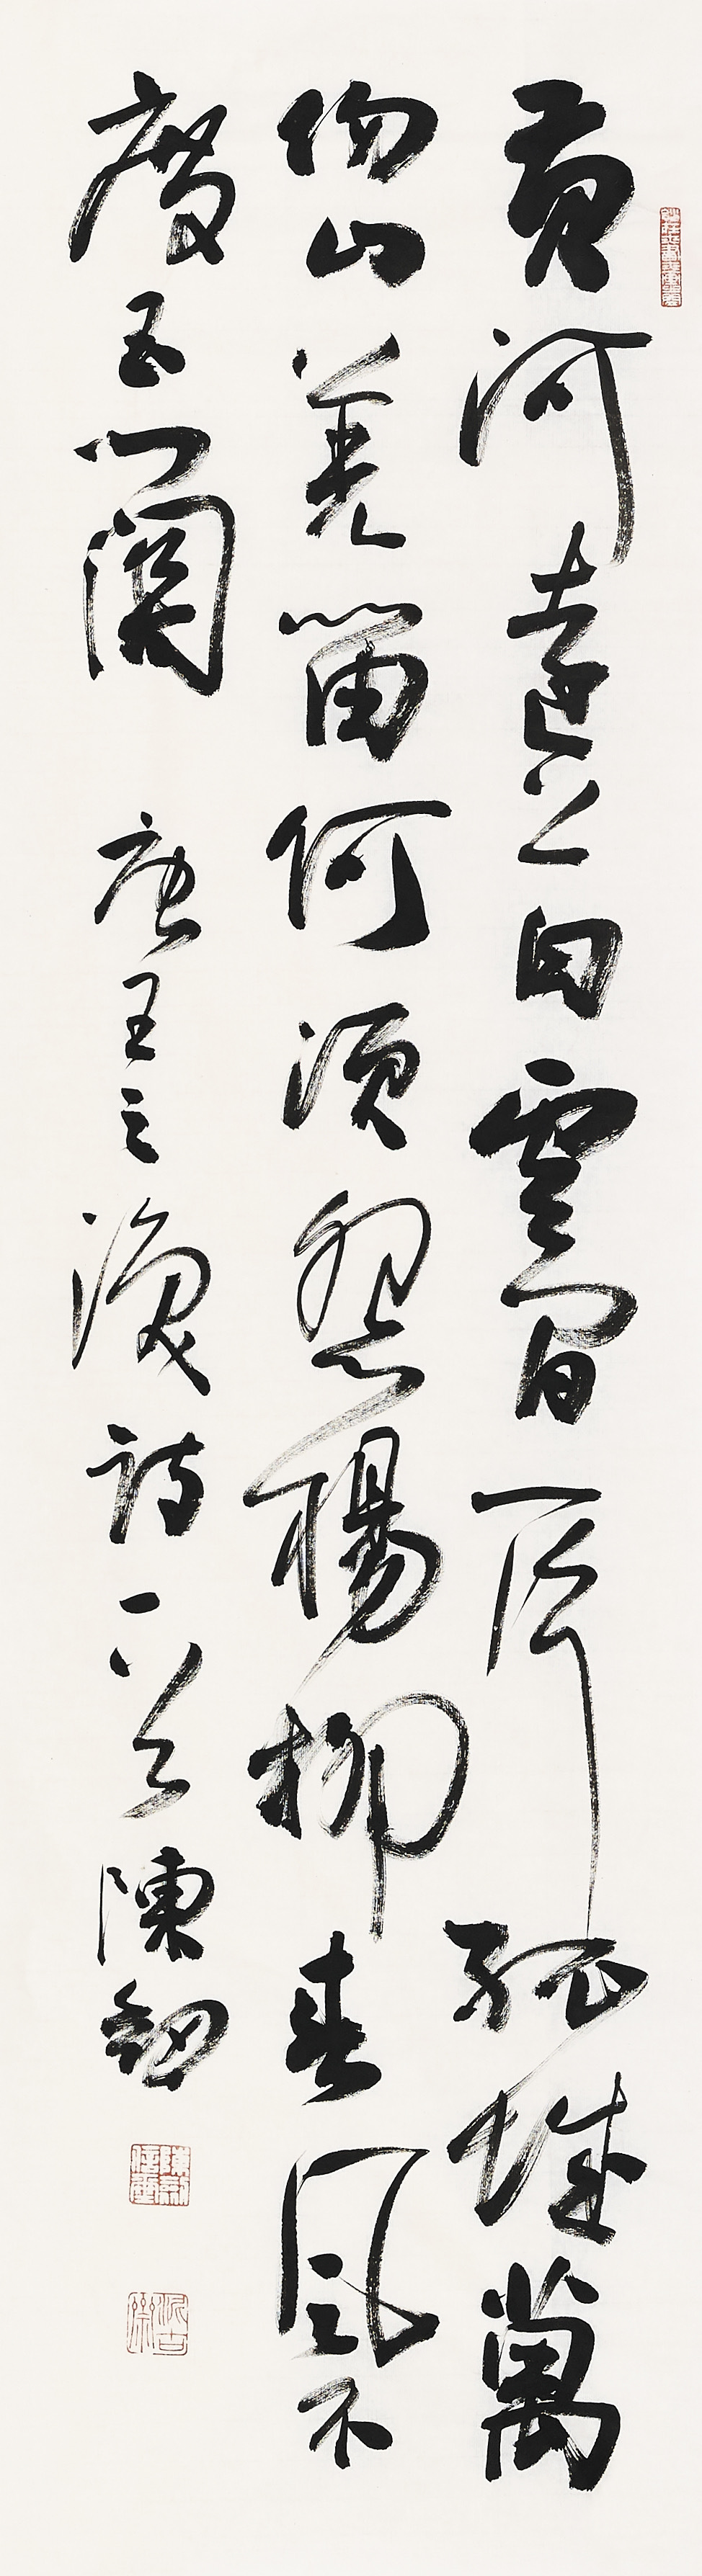 黄河遠上白雲間一片孤城萬
仞山羌笛何須怨楊柳春風不
度玉門關 唐王之渙詩一首 陳劒